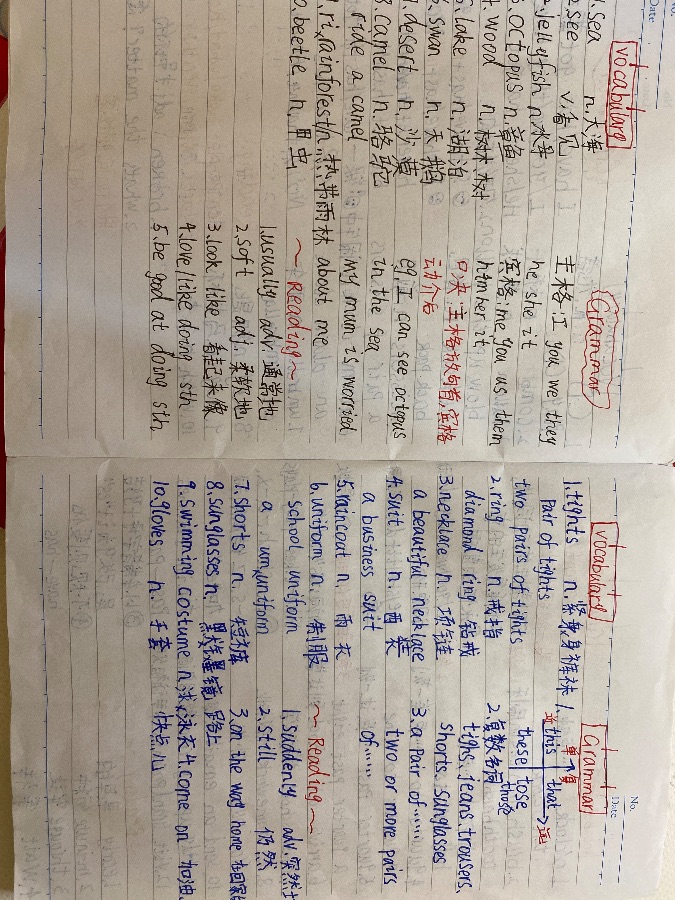 Date
vocabulary
sea n.大海
see v.看见
jellyfish n.水母
octopus n.章鱼
wood n.树林
lake n.湖泊
swan n.天鹅
desert n.沙漠
camel n.骆驼
ride a camel
rainforest n.热带雨林
beetle n.甲虫
Grammar
主格:I you we they
he she it
宾格:me you us them
him her it
口决:主格放句首,宾格
动介后
eg:I can see octopus
in the sea
my mum is worried
about me
~Reading~
1.usually adv.通常地
2.soft adj.柔软地
3.look like 看起来像
4.love/like doing sth
5.be good at doing sth
vocabulary
1.tights n.紧身裤袜
pair of tights
two pairs of tights
2.ring n.戒指
diamond ring 钻戒
3.necklace n.项链
a beautiful necklace
4.suit n.西装
a business suit
5.raincoat n.雨衣
6.uniform n.制服
school uniform
a uniform
7.shorts n.短裤
8.sunglasses n.墨镜
9.swimming costume n.泳衣
10.gloves n.手套
No.
Date
Grammar
1.
近 this that 远
these tose
those
2.复数名词
tighs, jeans trousers,
shorts, sunglasses
3.a pair of……
two or more pairs
of……
~Reading~
1.suddenly adv.突然
2.still 仍然
3.on the way home 在回家
路上
4.come on 加油、
快点儿